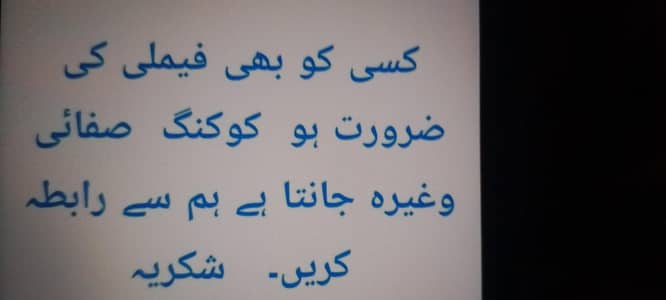 کسی کو بھی فیملی کی
ضرورت ہو کوکنگ صفائی
وغیرہ جانتا ہے ہم سے رابطہ
کریں۔ شکریہ